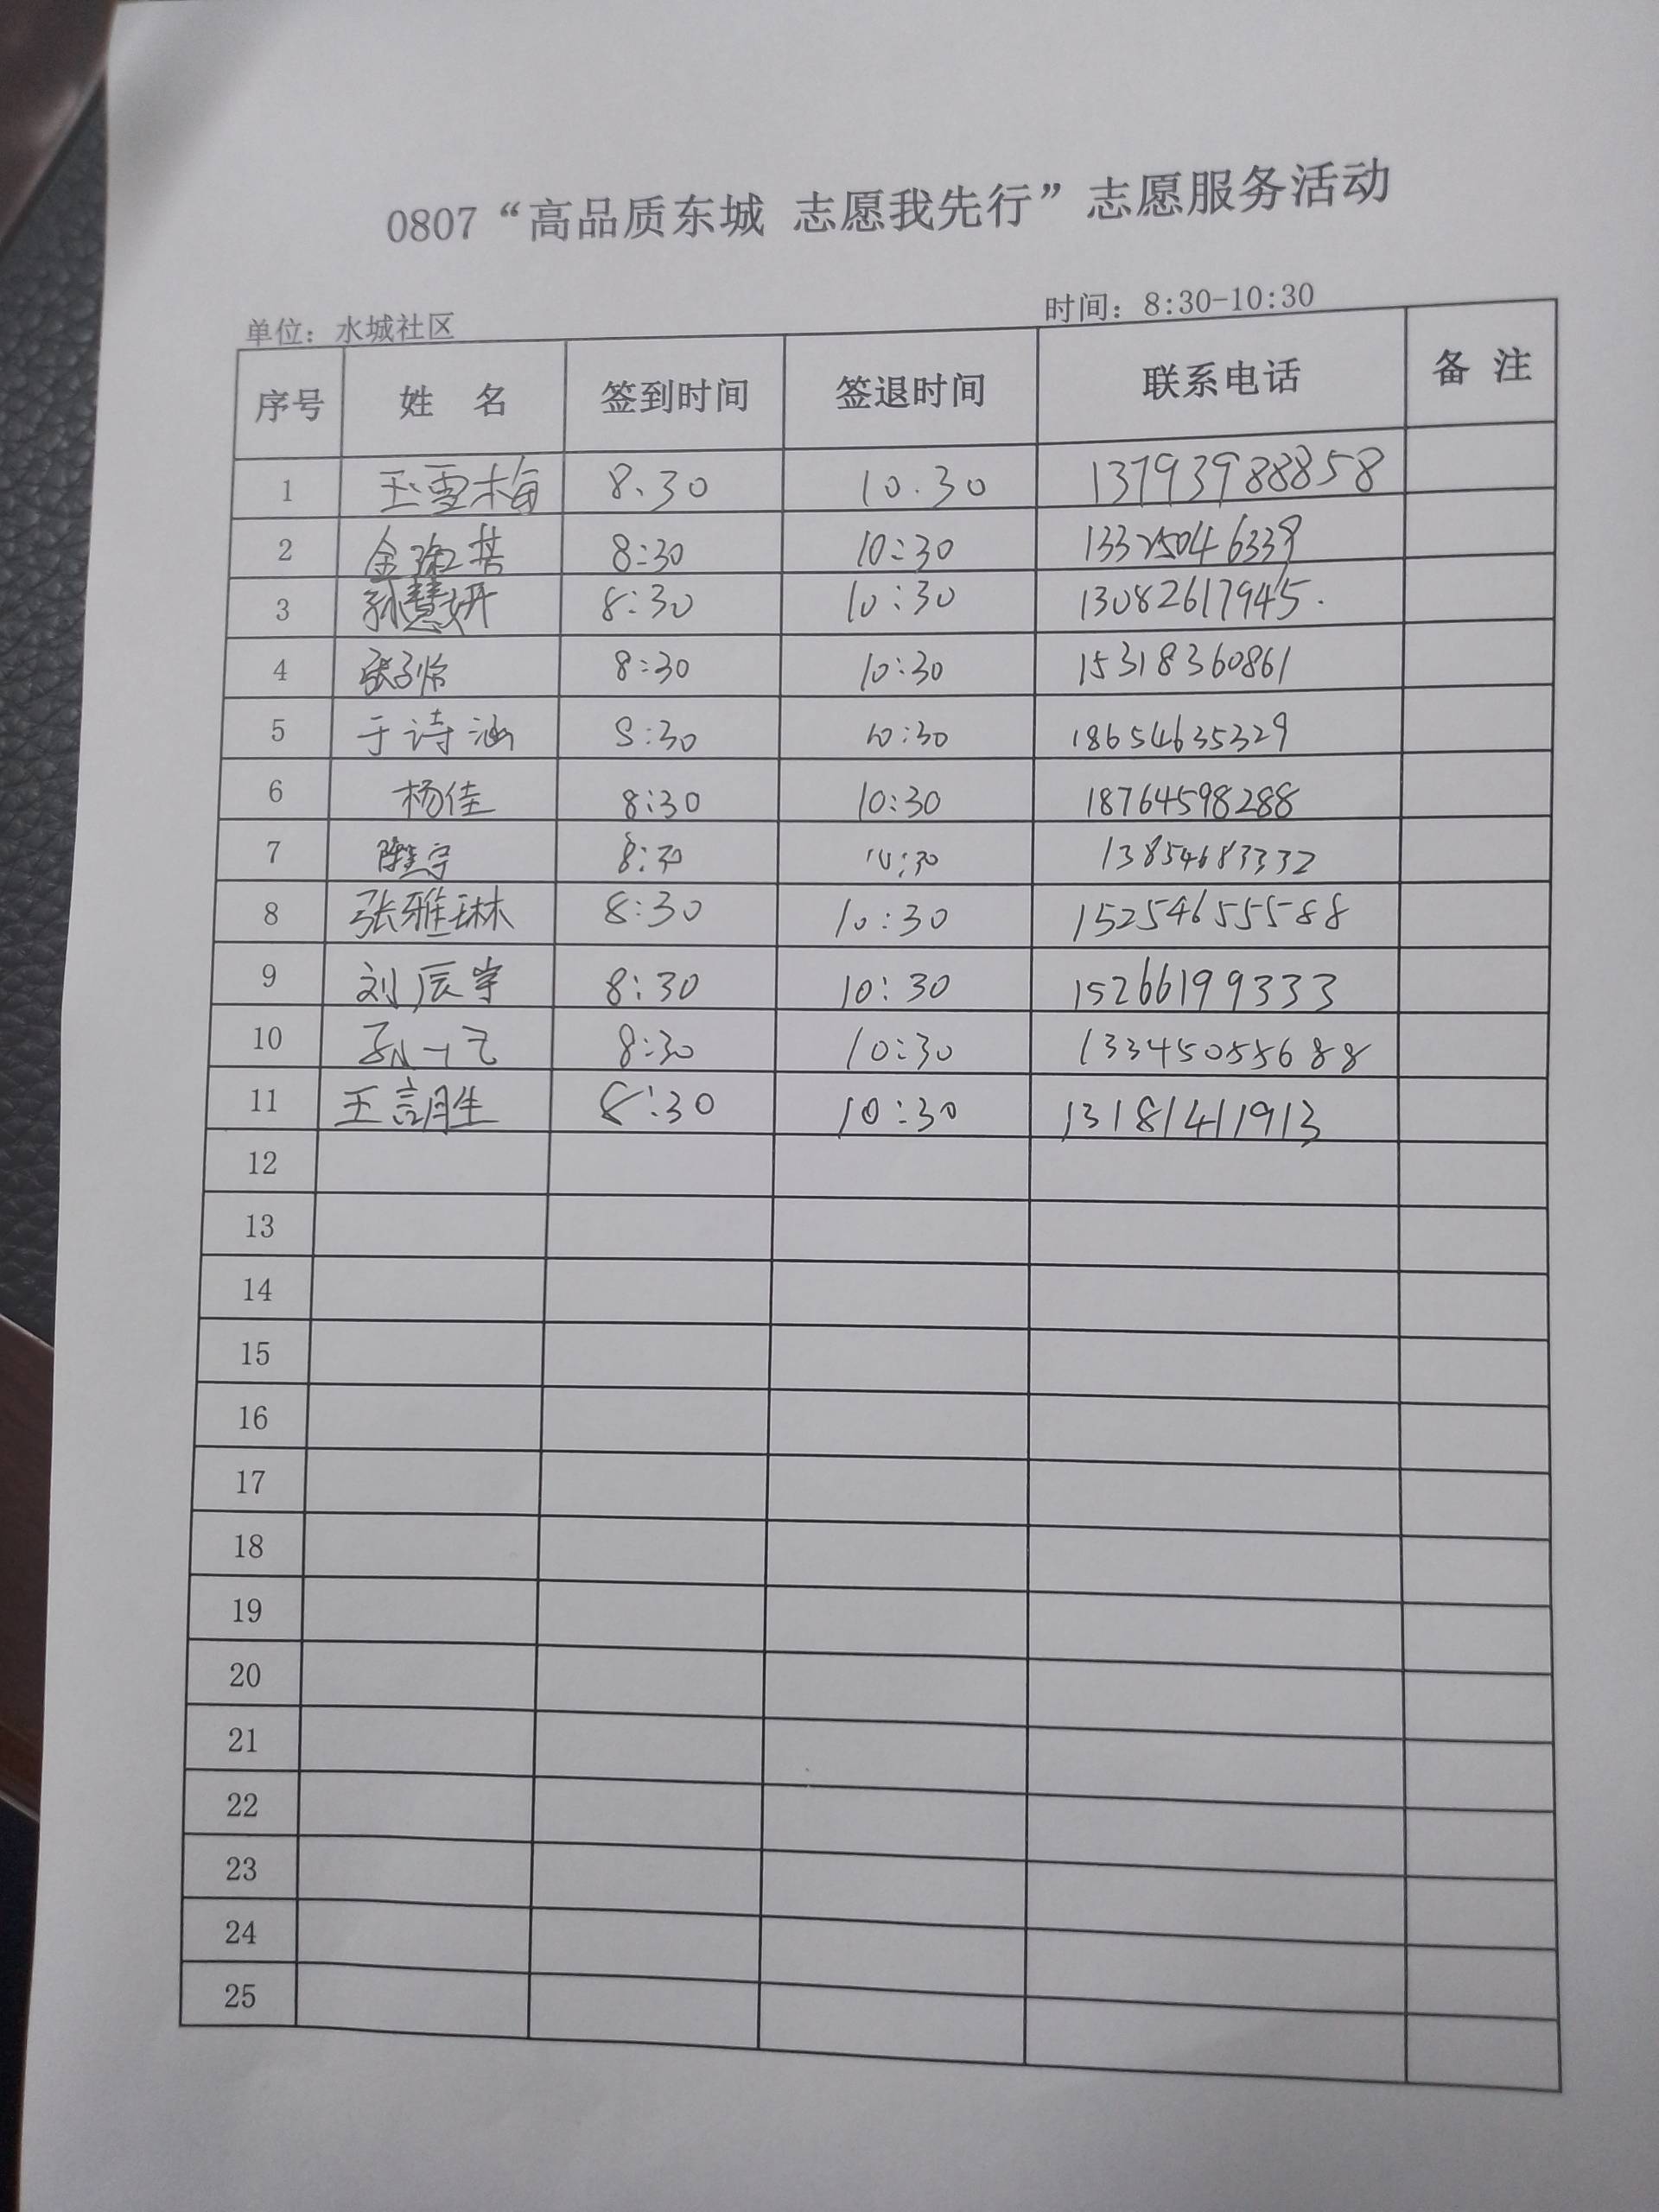 0807“高品质东城 志愿我先行”志愿服务活动
单位：水城社区 时间：8:30-10:30
序号 姓 名 签到时间 签退时间 联系电话 备 注
1 王雪梅 8.30 10.30 13793988858
2 金 8:30 10:30 13325046339
3 孙慧妍 8:30 10:30 13082617945.
4 张子怡 8:30 10:30 15318360861
5 于诗涵 8:30 10:30 18654635329
6 杨佳 8:30 10:30 18764598288
7 8:30 10:30 13854683332
8 张雅琳 8:30 10:30 15254655588
9 刘辰宇 8:30 10:30 15266199333
10 孙一飞 8:30 10:30 13345055688
11 王 8:30 10:30 13181411913
12
13
14
15
16
17
18
19
20
21
22
23
24
25